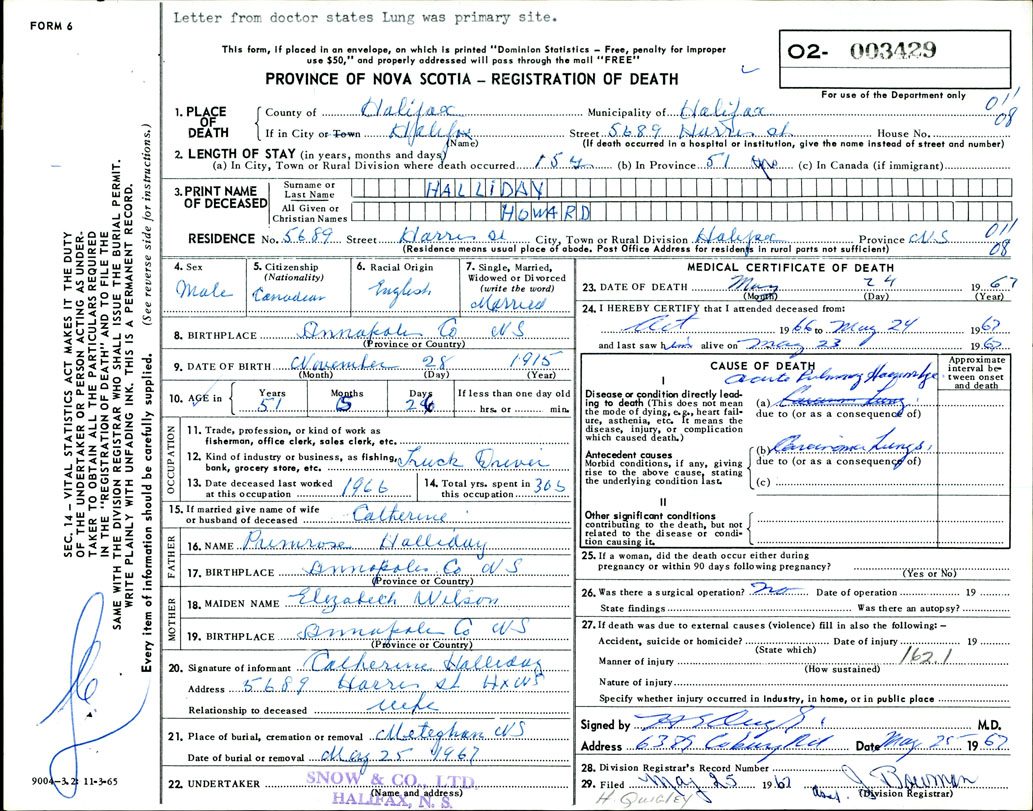 Letter from doctor states Lung was primary site.
FORM 6
This form, if placed in an envelope, on which is printed "Dominion Statistics – Free, penalty for improper
use $50," and properly addressed will pass through the mail "FREE"
PROVINCE OF NOVA SCOTIA – REGISTRATION OF DEATH
O2- 003429
For use of the Department only
011
08
1. PLACE OF DEATH
County of Halifax Municipality of Halifax
If in City or Town Halifax Street 5689 Harris St House No.
(Name) (If death occurred in a hospital or institution, give the name instead of street and number)
2. LENGTH OF STAY (in years, months and days)
(a) In City, Town or Rural Division where death occurred 15 y (b) In Province 51 yrs (c) In Canada (if immigrant)
3. PRINT NAME OF DECEASED
Surname or Last Name HALLIDAY
All Given or Christian Names HOWARD
RESIDENCE No. 5689 Street Harris St City, Town or Rural Division Halifax Province NS
(Residence means usual place of abode. Post Office Address for residents in rural parts not sufficient)
011
08
4. Sex Male
5. Citizenship (Nationality) Canadian
6. Racial Origin English
7. Single, Married, Widowed or Divorced (write the word) Married
8. BIRTHPLACE Annapolis Co NS
(Province or Country)
9. DATE OF BIRTH November 28 1915
(Month) (Day) (Year)
10. AGE in Years 51 Months 5 Days 26 If less than one day old
hrs. or min.
OCCUPATION
11. Trade, profession, or kind of work as
fisherman, office clerk, sales clerk, etc.
12. Kind of industry or business, as fishing,
bank, grocery store, etc. Truck Driver
13. Date deceased last worked
at this occupation 1966
14. Total yrs. spent in
this occupation 30
15. If married give name of wife
or husband of deceased Catherine
FATHER
16. NAME Primrose Halliday
17. BIRTHPLACE Annapolis Co NS
(Province or Country)
MOTHER
18. MAIDEN NAME Elizabeth Wilson
19. BIRTHPLACE Annapolis Co NS
(Province or Country)
20. Signature of informant Catherine Halliday
Address 5689 Harris St Hx NS
Relationship to deceased wife
21. Place of burial, cremation or removal Meteghan NS
Date of burial or removal May 25 1967
22. UNDERTAKER SNOW & CO., LTD.
(Name and address)
HALIFAX, N. S.
MEDICAL CERTIFICATE OF DEATH
23. DATE OF DEATH May 24 1967
(Month) (Day) (Year)
24. I HEREBY CERTIFY that I attended deceased from:
Oct 1966 to May 24 1967
and last saw him alive on May 23 1967
CAUSE OF DEATH
Approximate interval between onset and death
I
Acute Pulmonary Haemorrhage
Disease or condition directly leading to death (This does not mean the mode of dying, e.g., heart failure, asthenia, etc. It means the disease, injury, or complication which caused death.)
(a) Carcinoma Lung
due to (or as a consequence of)
Antecedent causes
Morbid conditions, if any, giving rise to the above cause, stating the underlying condition last.
(b) Carcinoma Lungs
due to (or as a consequence of)
(c)
II
Other significant conditions
contributing to the death, but not related to the disease or condition causing it.
25. If a woman, did the death occur either during
pregnancy or within 90 days following pregnancy?
(Yes or No)
26. Was there a surgical operation? no Date of operation 19
State findings Was there an autopsy?
27. If death was due to external causes (violence) fill in also the following: –
Accident, suicide or homicide? Date of injury 19
(State which)
162.1
Manner of injury
(How sustained)
Nature of injury
Specify whether injury occurred in industry, in home, or in public place
Signed by M.D.
Address 6389 Coburg Rd Date May 25 1967
28. Division Registrar's Record Number
29. Filed May 25 1967 J. Bowman
(Division Registrar)
H QUIGLEY
SEC. 14 – VITAL STATISTICS ACT MAKES IT THE DUTY
OF THE UNDERTAKER OR PERSON ACTING AS UNDER-
TAKER TO OBTAIN ALL THE PARTICULARS REQUIRED
IN THE "REGISTRATION OF DEATH" AND TO FILE THE
SAME WITH THE DIVISION REGISTRAR WHO SHALL ISSUE THE BURIAL PERMIT.
WRITE PLAINLY WITH UNFADING INK. THIS IS A PERMANENT RECORD.
Every item of information should be carefully supplied. (See reverse side for instructions.)
9004-3.2: 11-3-65